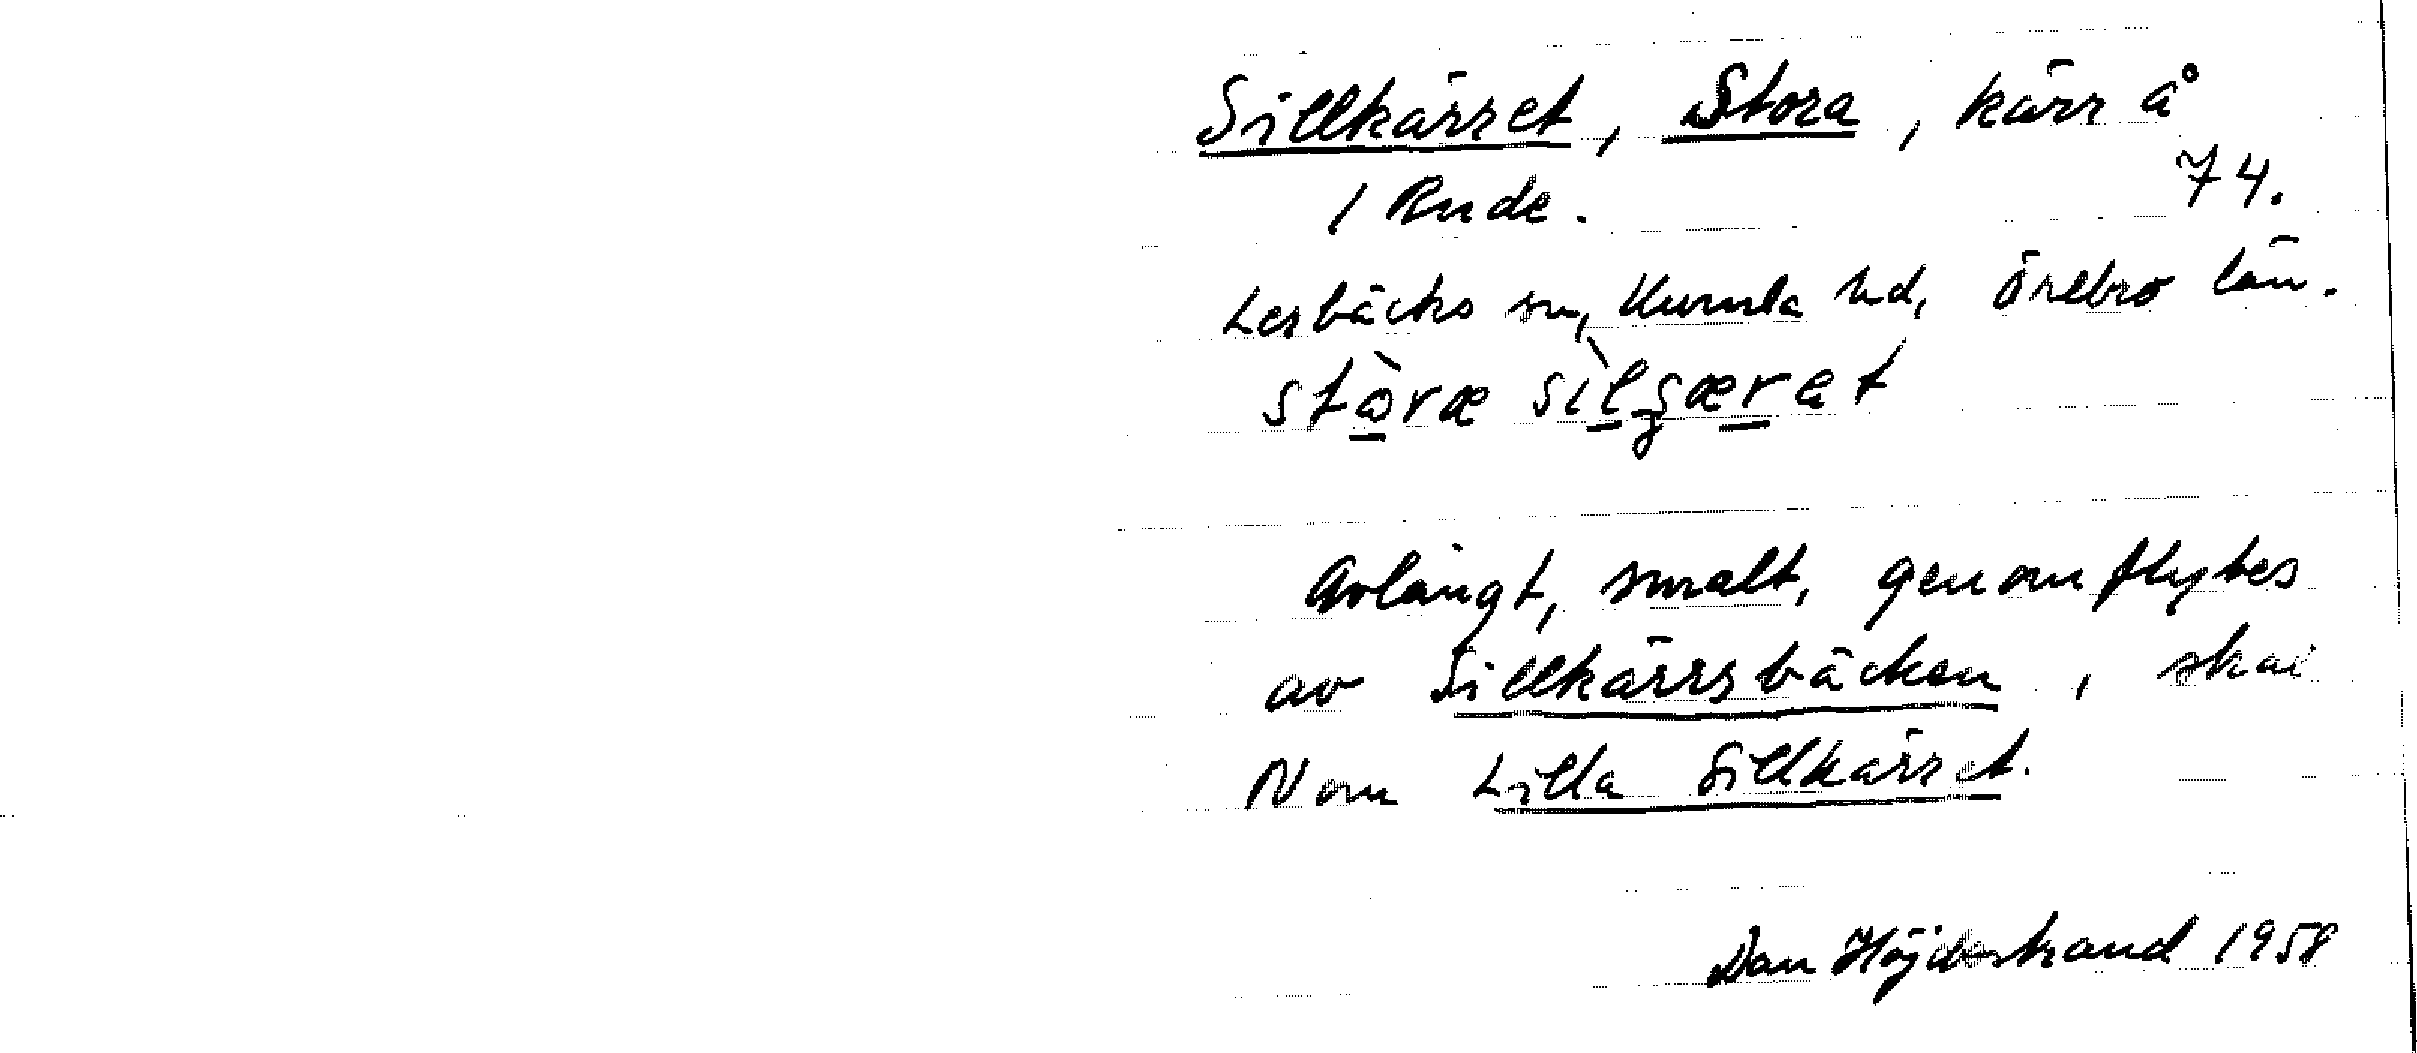 Sillkärret, Stora, kärr å
74.
1 Rude.
Lerbäcks sn, Kumla hd, Örebro län.
stòræ sìlgæret
Avlångt, smalt, genomflytes
av Sillkärrsbäcken, strax
N om Lilla Sillkärret.
Dan Höjderstrand 1958